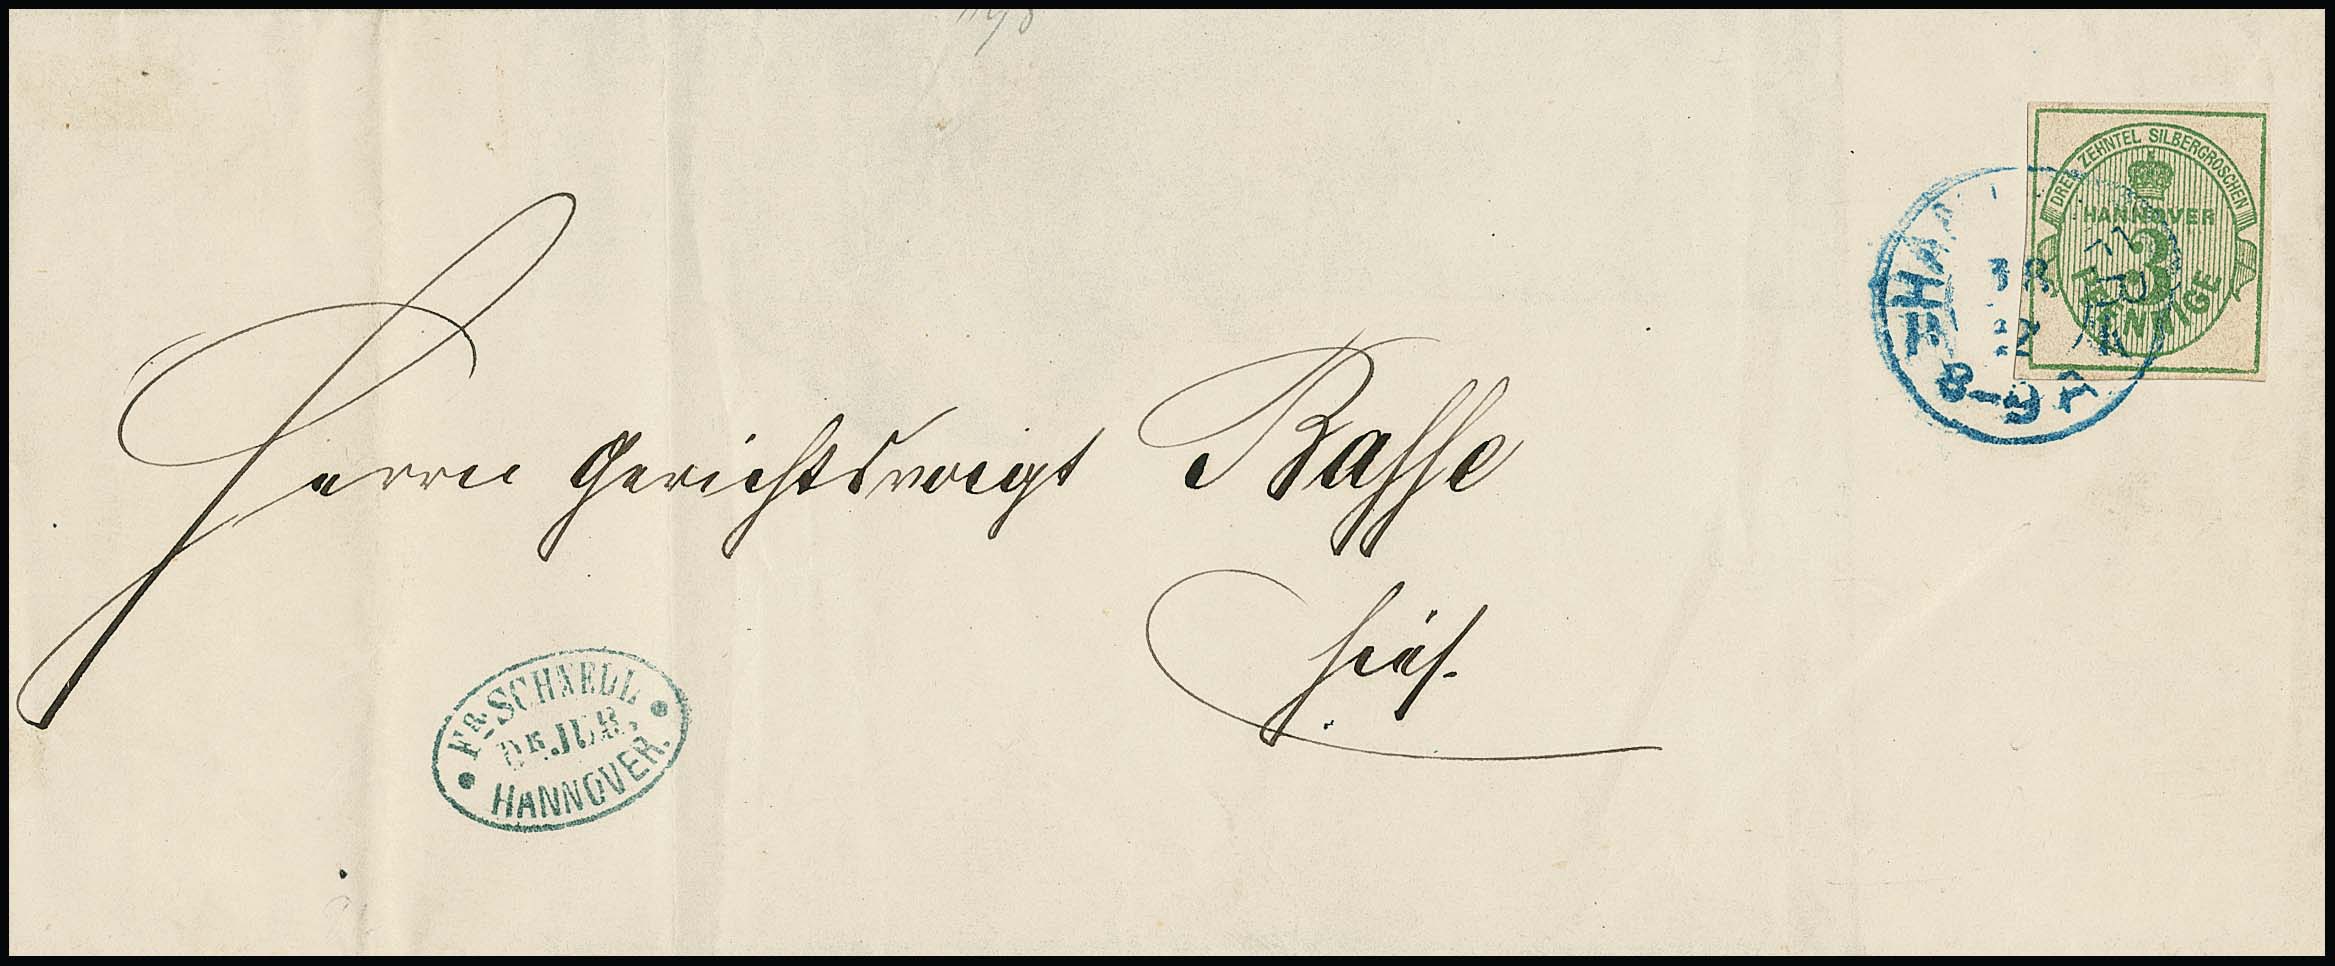 DREI ZEHNTEL SILBERGROSCHEN
HANNOVER
3
PFENNIGE
8-9
Herrn Gerichtsvoigt Basse
hies.
FR. SCHNELL
HANNOVER.